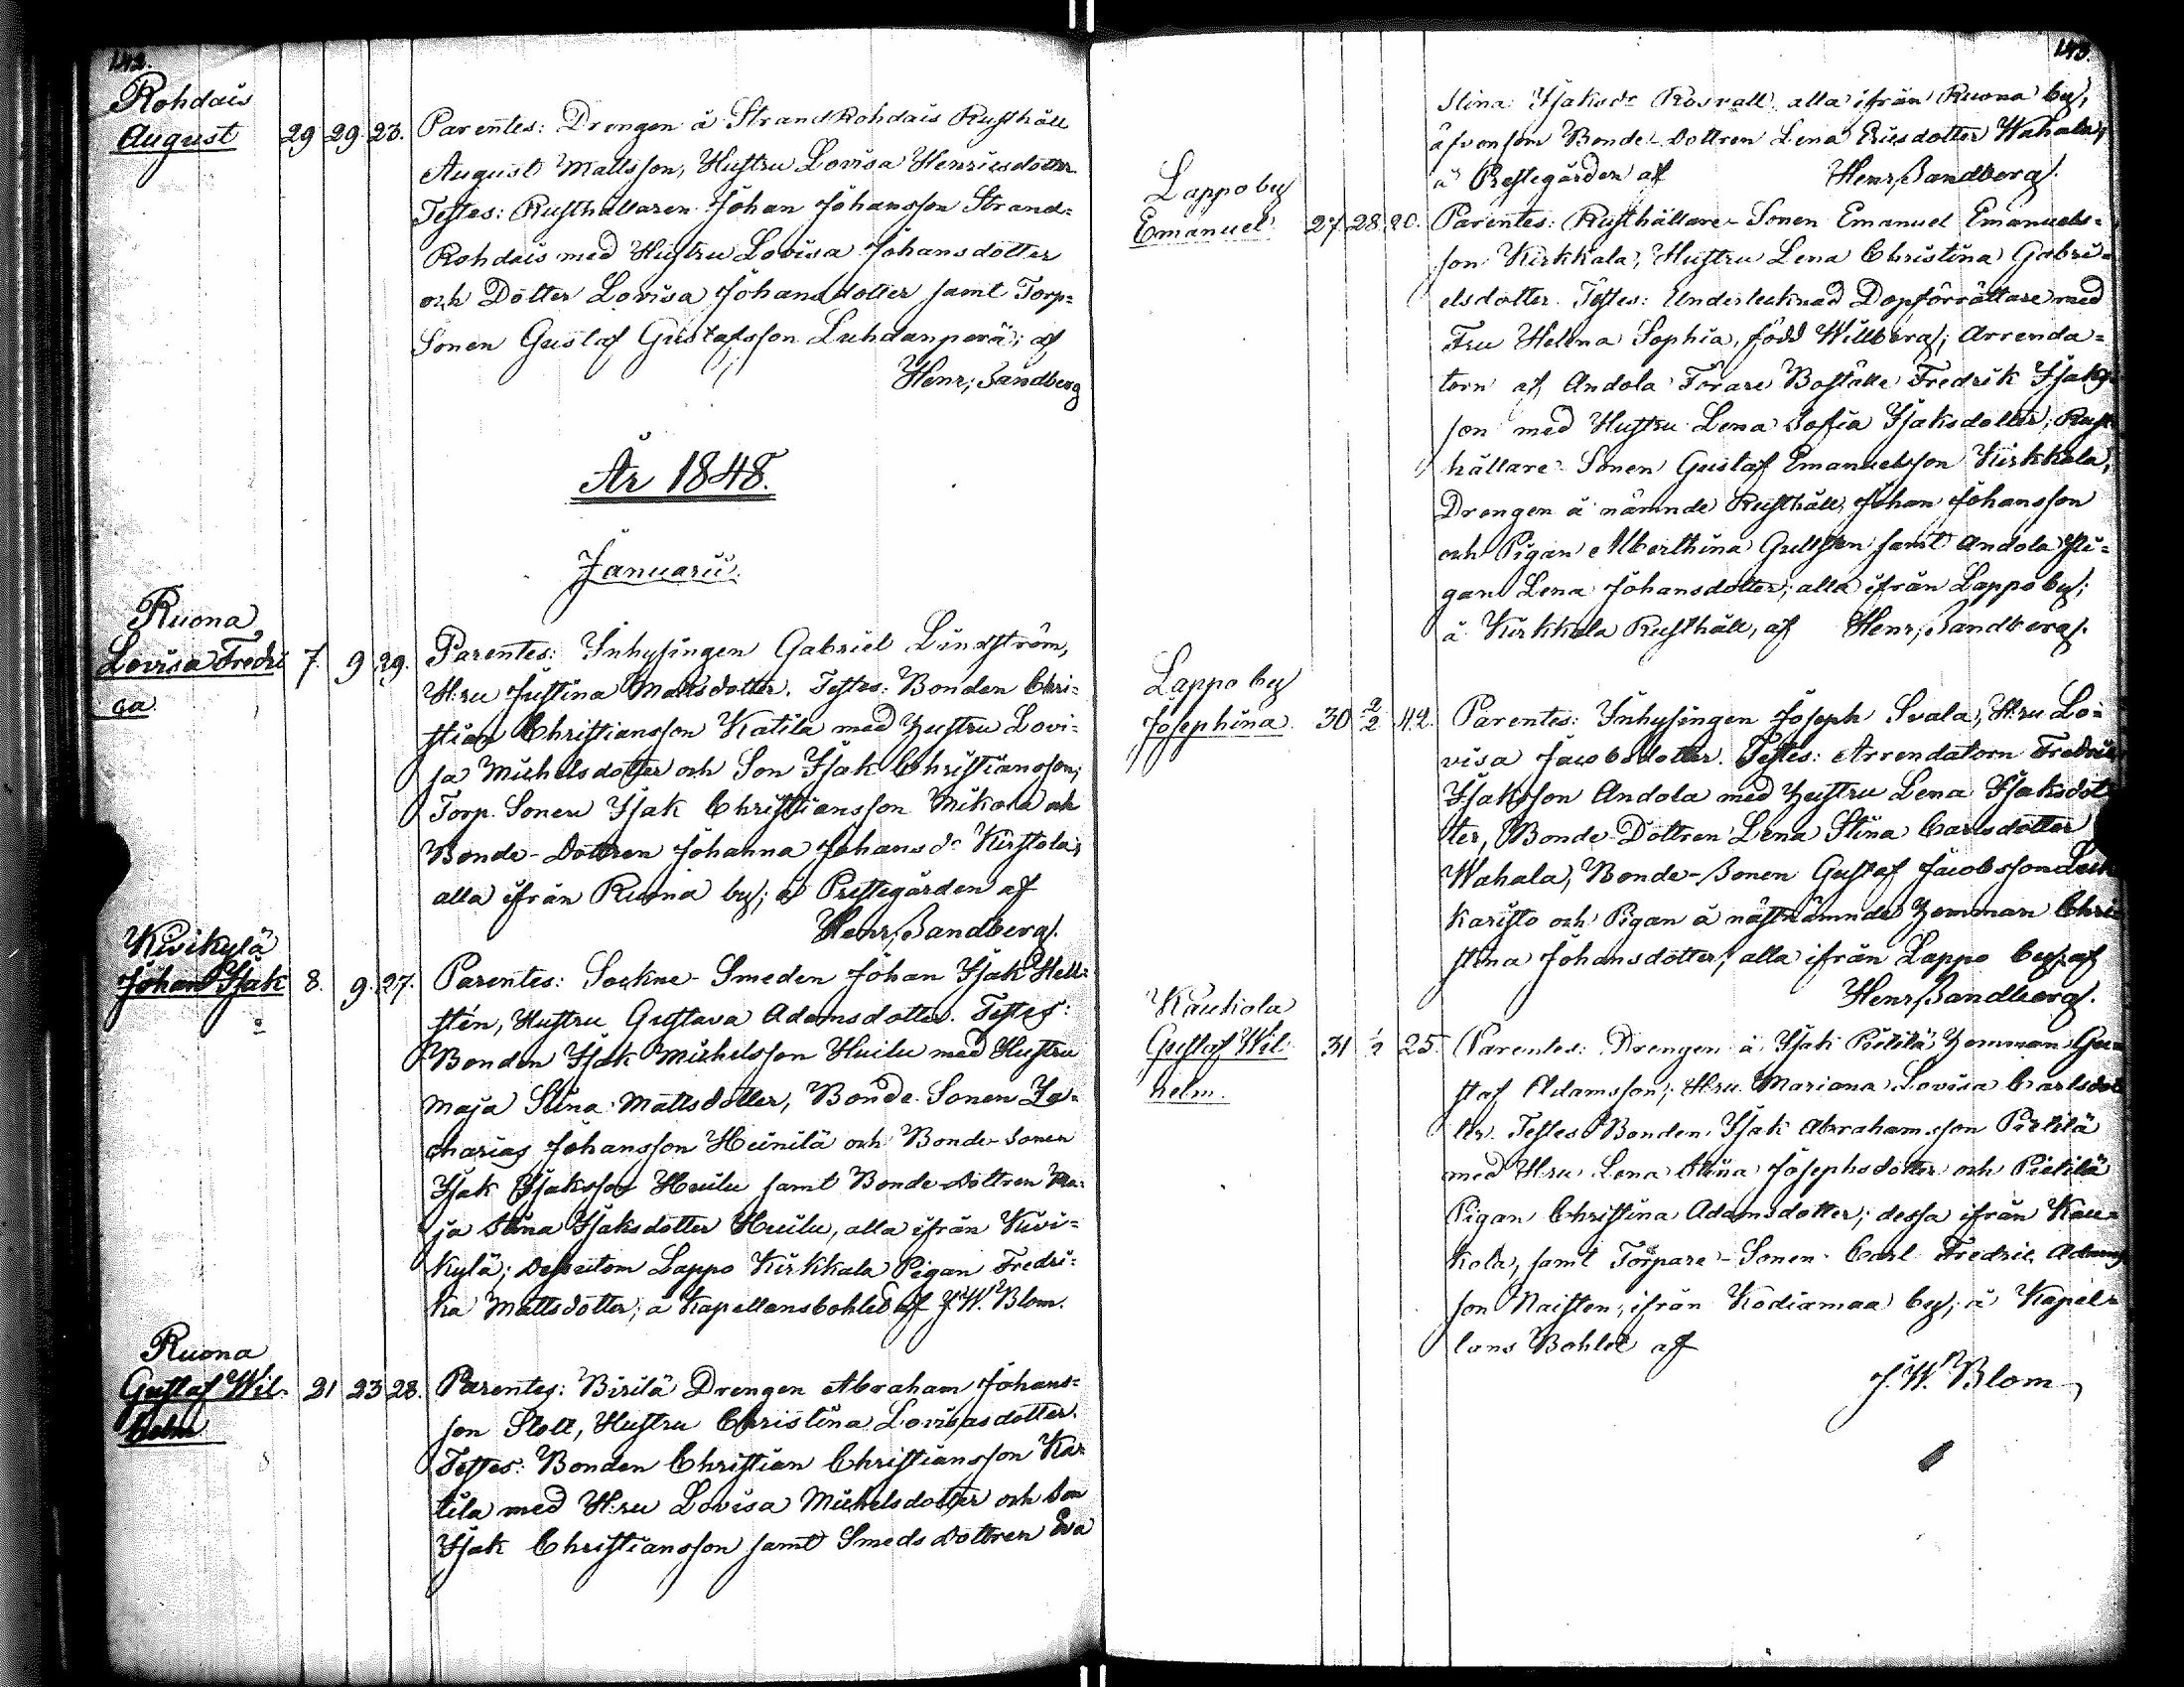 142.
Rohdais
August 29 29 23. Parentes: Drengen å Strand Rohdais Rusthåll
August Mattsson, Hustru Lovisa Henricsdotter.
Testes: Rusthållaren Johan Johansson Strand=
Rohdais med Hustru Lovisa Johansdotter
och Dotter Lovisa Johansdotter samt Torp=
Sonen Gustaf Gustafsson Luhdanperä; af
Henr; Sandberg
År 1848.
Januarii.
Ruona
Lovisa Fredri 7. 9 29. Parentes: Inhysingen Gabriel Lindström,
ca. H:ru Justina Mattsdotter. Testes: Bonden Chri=
stian Christiansson Katila med Hustru Lovi=
sa Michelsdotter och Son Isak Christiansson;
Torp. Sonen Isak Christiansson Mikola och
Bonde-Dottren Johanna Johansdr Kirstola;
alla ifrån Ruona by; å Prestegården af
Henr; Sandberg.
Kivikylä
Johan Isak 8. 9. 27. Parentes: Sockne-Smeden Johan Isak Hell=
stén, Hustru Gustava Adamsdotter. Testes:
Bonden Isak Michelsson Huilu med Hustru
Maja Stina Mattsdotter, Bonde-Sonen Za=
charias Johansson Heinilä och Bonde-Sonen
Isak Isaksson Huilu samt Bonde-Dottren Ma=
ja Stina Isaksdotter Huilu, alla ifrån Kivi=
kylä; dessutom Lappo Kirkkala Pigan Fredri=
ka Mattsdotter; å Kapellansbohlet af J. W. Blom.
Ruona
Gustaf Wil= 21 23 28. Parentes: Birilä Drengen Abraham Johans=
helm son Stolt, Hustru Christina Lovisasdotter.
Testes: Bonden Christian Christiansson Ka=
tila med H:ru Lovisa Michelsdotter och Son
Isak Christiansson samt Smeds Dottren Eva
143.
Stina Isaksdr Rosvall alla ifrån Ruona by,
äfvensom Bonde-Dottren Lena Ericsdotter Wahala;
å Prestegården af Henr; Sandberg.
Lappo by
Emanuel 27 28 20. Parentes: Rusthållare-Sonen Emanuel Emanuels=
son Kirkkala, Hustru Lena Christina Gabri=
elsdotter. Testes: Undertecknad Dopförrättare med
Fru Helena Sophia, född Willberg; Arrenda=
torn af Andola Förare Boställe Fredrik Isaks=
son med Hustru Lena Sofia Isaksdotter; Rust=
hållare-Sonen Gustaf Emanuelsson Kirkkala,
Drengen å nämnde Rusthåll, Johan Johansson
och Pigan Alberthina Gullsten samt Andola Pi=
gan Lena Johansdotter; alla ifrån Lappo by;
å Kirkkala Rusthåll, af Henr; Sandberg.
Lappo by
Josephina. 30 2/2 42. Parentes: Inhysingen Joseph Svala, H:ru Lo=
visa Jacobsdotter. Testes: Arrendatorn Fredric
Isaksson Andola med Hustru Lena Isaksdot=
ter, Bonde-Dottren Lena Stina Carlsdotter
Wahala, Bonde-Sonen Gustaf Jacobsson
karisto och Pigan å nästnämnde Hemman Chri=
stina Johansdotter; alla ifrån Lappo by; af
Henr; Sandberg.
Kaukola
Gustaf Wil= 31 1/2 25. Parentes: Drengen å Isak Pietilä Hemman Gu=
helm. staf Adamsson; H:ru Mariana Lovisa Carlsdot=
ter. Testes Bonden Isak Abrahamsson Pietilä
med H:ru Lena Stina Josephsdotter och Pietilä
Pigan Christina Adamsdotter; dessa ifrån Kau=
kola, samt Torpare-Sonen Carl Fredric Adams
son Naisten; ifrån Kodiamaa by; å Kapel=
lans Bohlet af
J. W. Blom